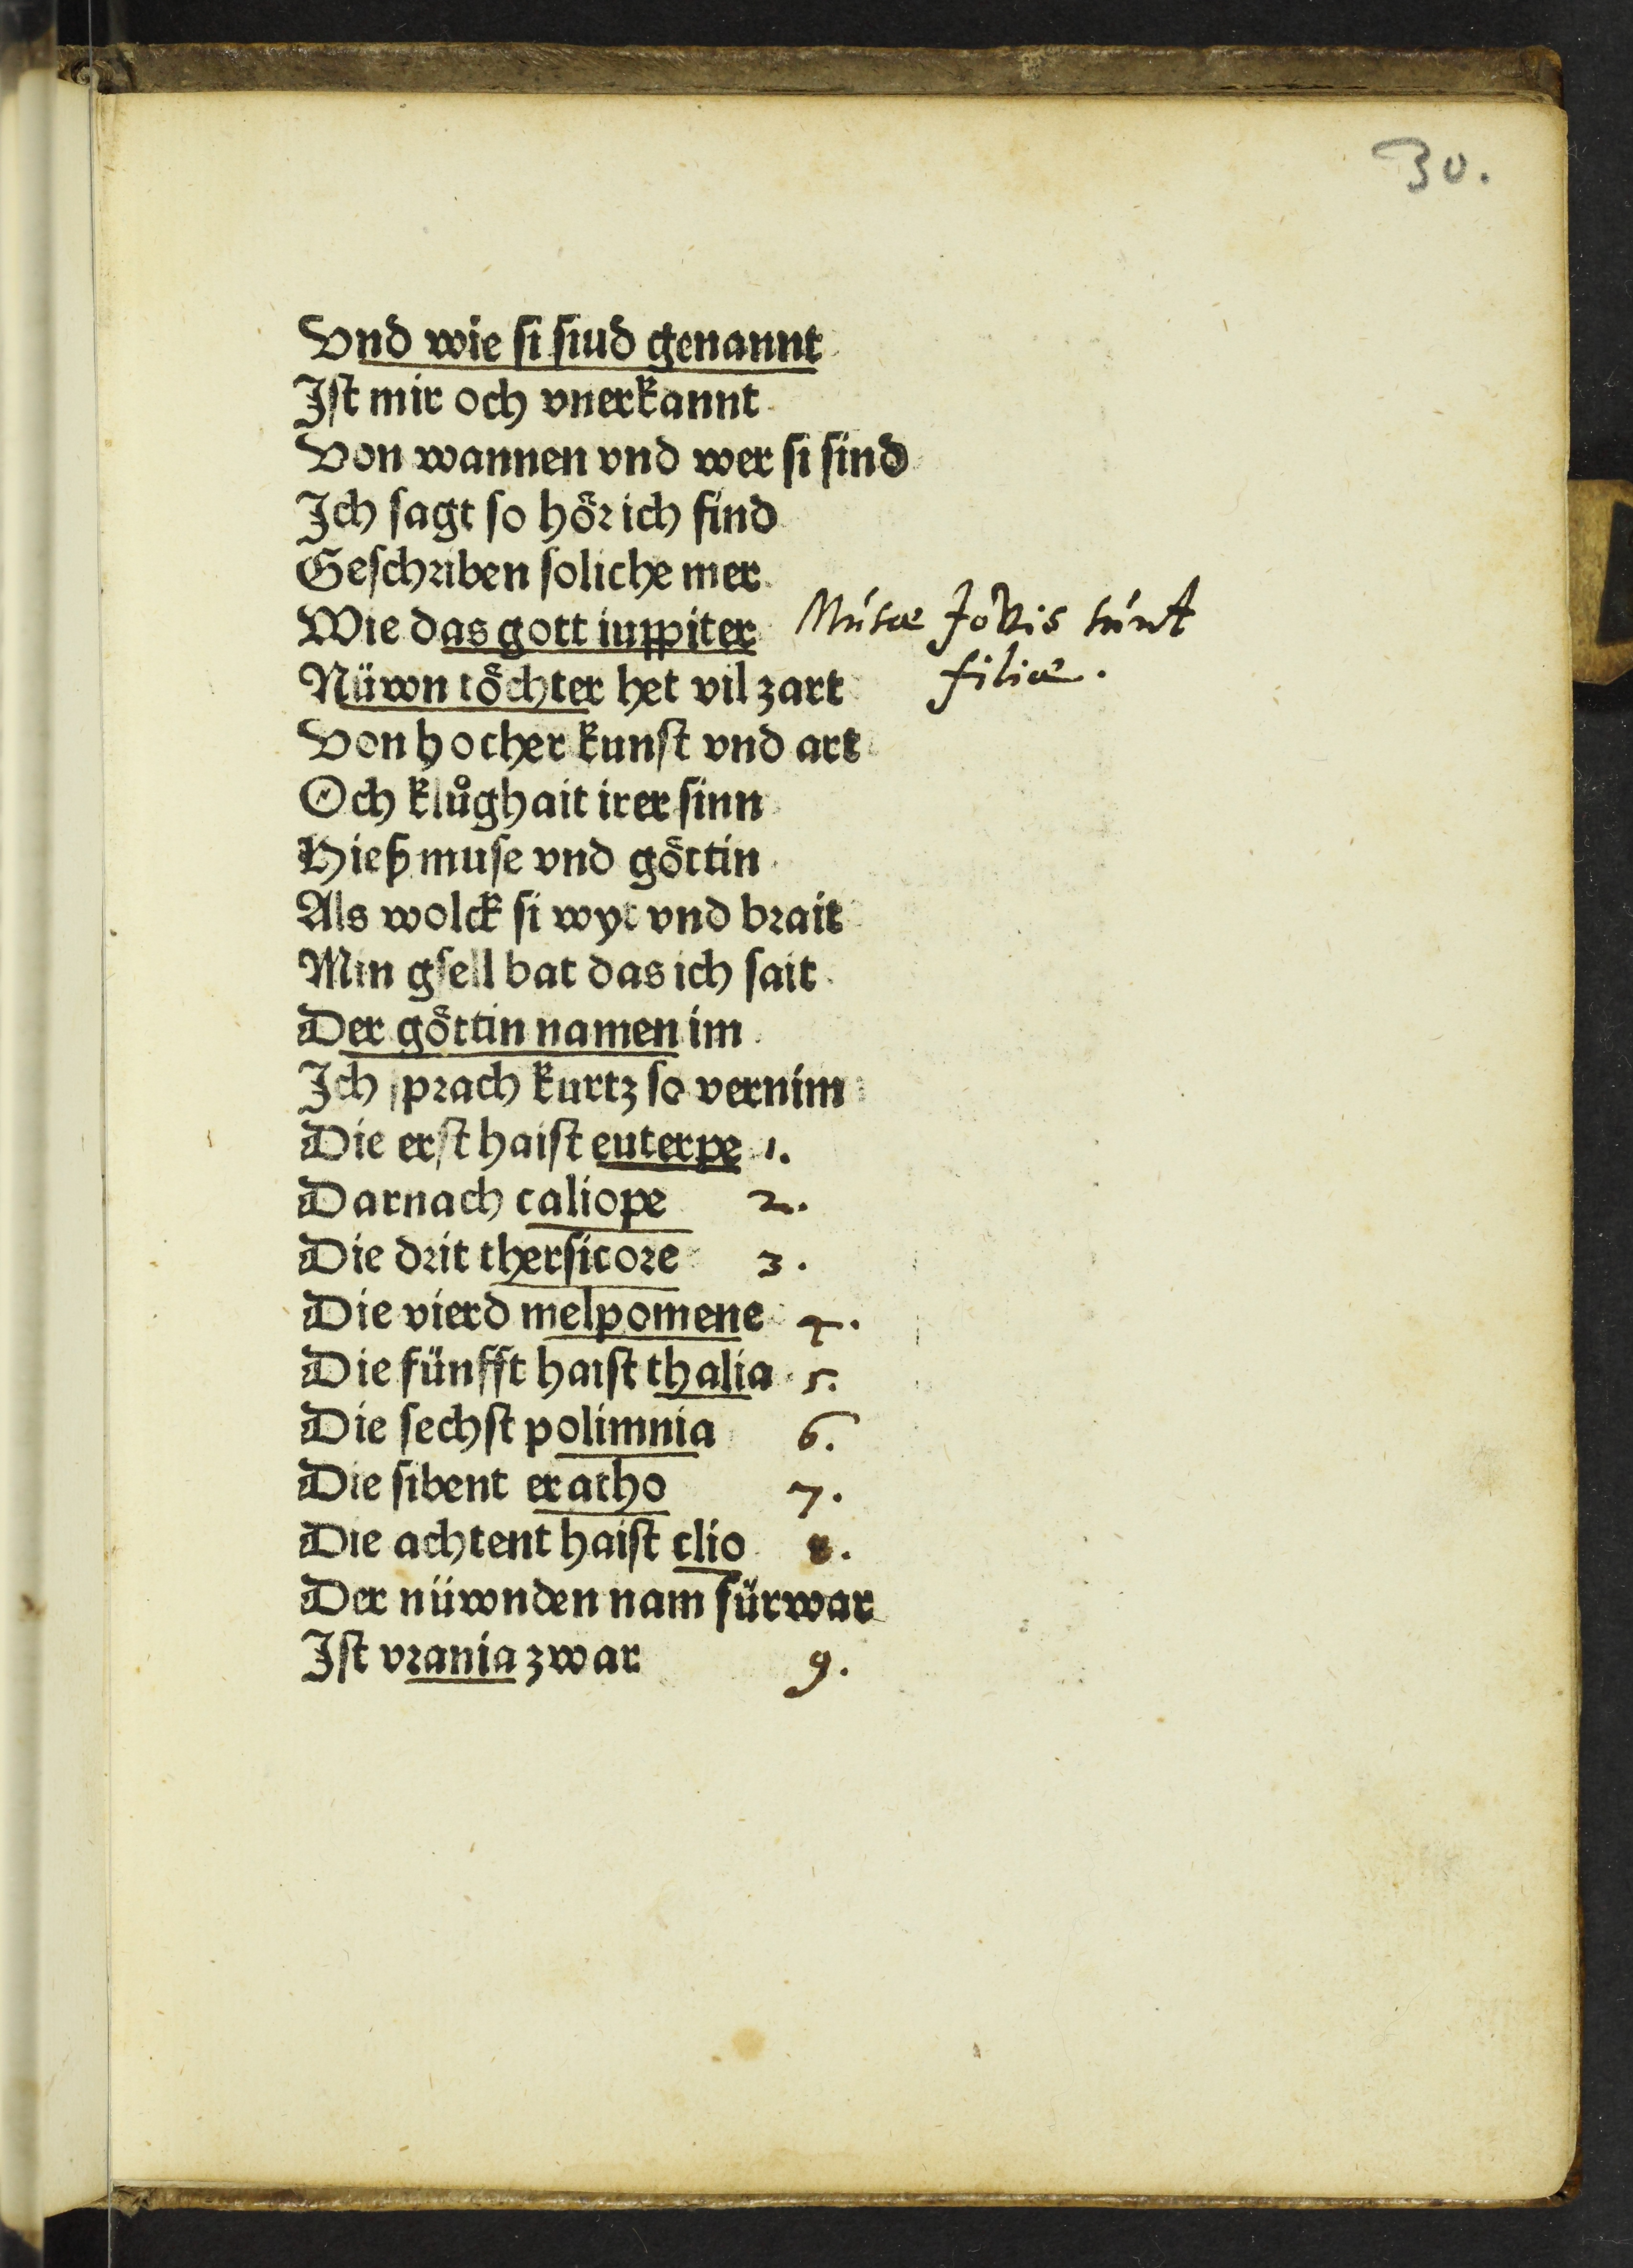 30.
Vnd wie si siud genannt
Ist mir och vnerkannt
Von wannen vnd wer si sind
Ich sagt so hör ich find
Geschriben soliche mer
Wie das gott iuppiter Musæ Jovis sunt
Nüwn töchter het vil zart filiæ.
Von hocher kunst vnd art
Och klůghait irer sinn
Hieß muse vnd göttin
Als wolck si wyt vnd brait
Min gsell bat das ich sait
Der göttin namen im
Ich sprach kurtz so vernim
Die erst haist euterpe 1.
Darnach caliope 2.
Die drit thersicore 3.
Die vierd melpomene 4.
Die fünfft haist thalia 5.
Die sechst polimnia 6.
Die sibent eratho 7.
Die achtent haist clio 8.
Der nüwnden nam fürwar
Ist vrania zwar 9.